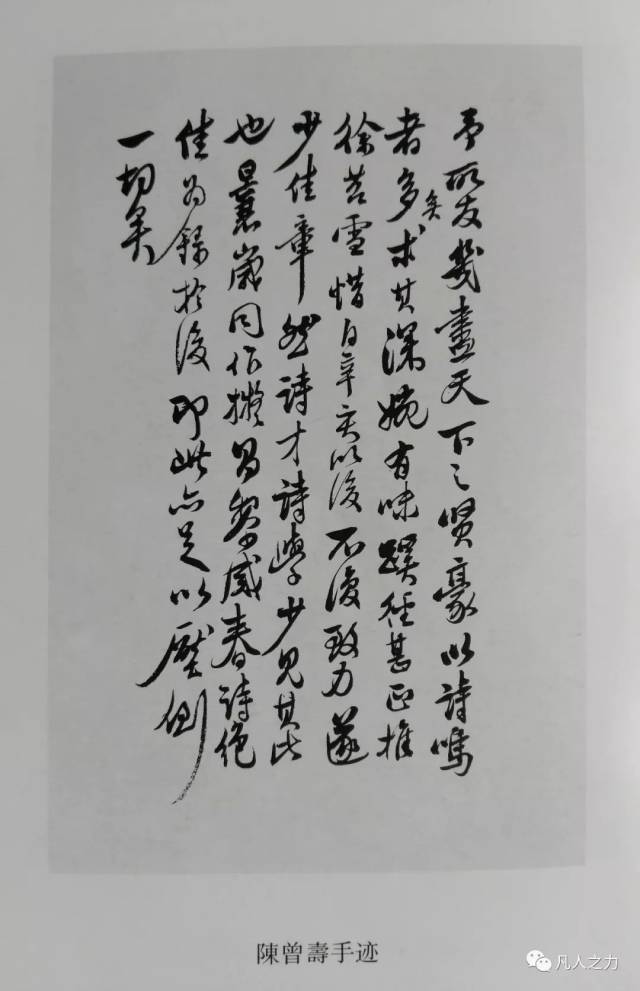 予所友幾盡天下之賢豪以詩鳴
者多矣求其深婉有味蹊徑甚正推
徐苕雪惜自辛亥以後不復致力遂
少佳章然詩才詩學少見其比
也曩歲同作擬昌黎感春詩絶
佳為錄於後即此亦足以壓倒
一切矣
陳曾壽手迹
凡人之力